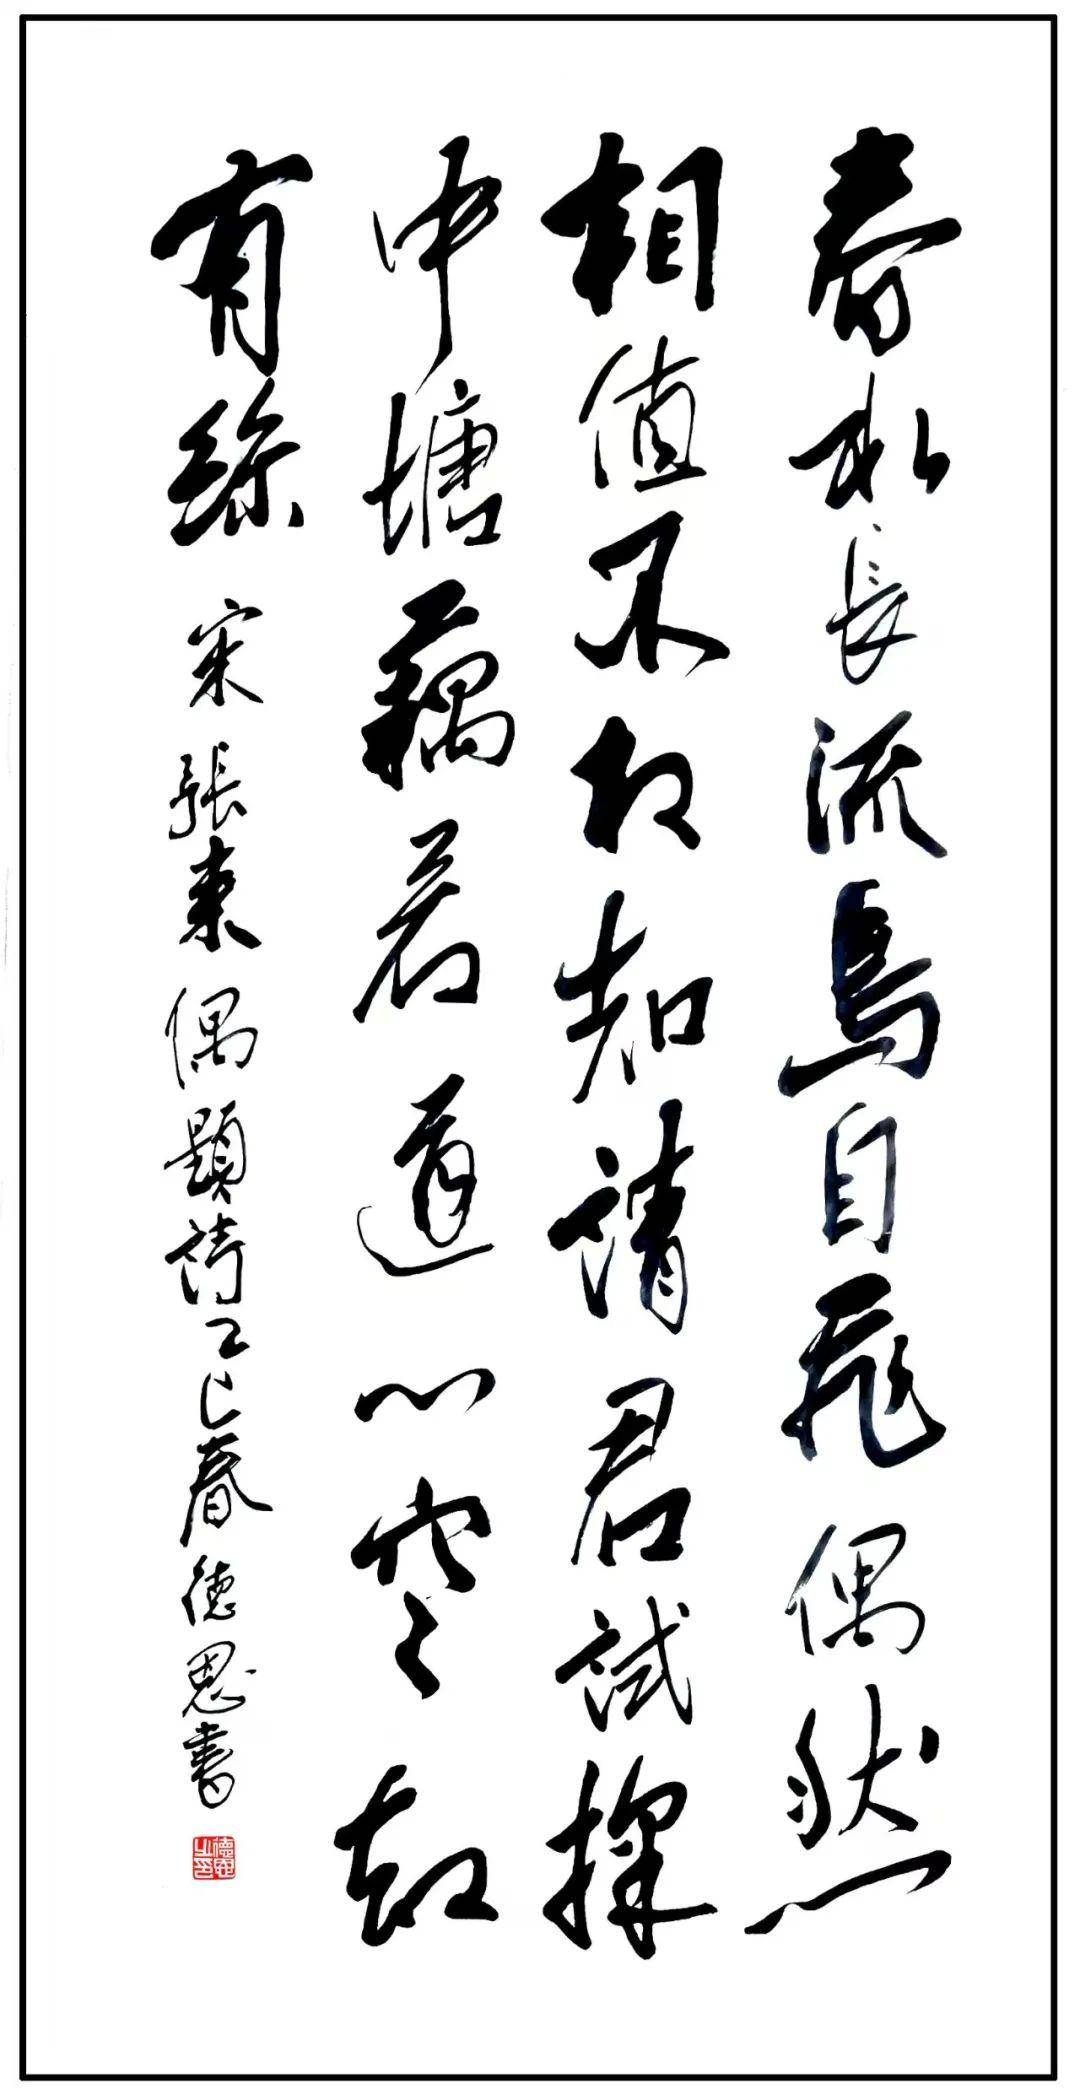 春水長流鳥自飛偶然
相值不相知請君試採
中塘藕若道心空却
有絲 宋張耒偶題詩乙巳春德恩書
德恩之印